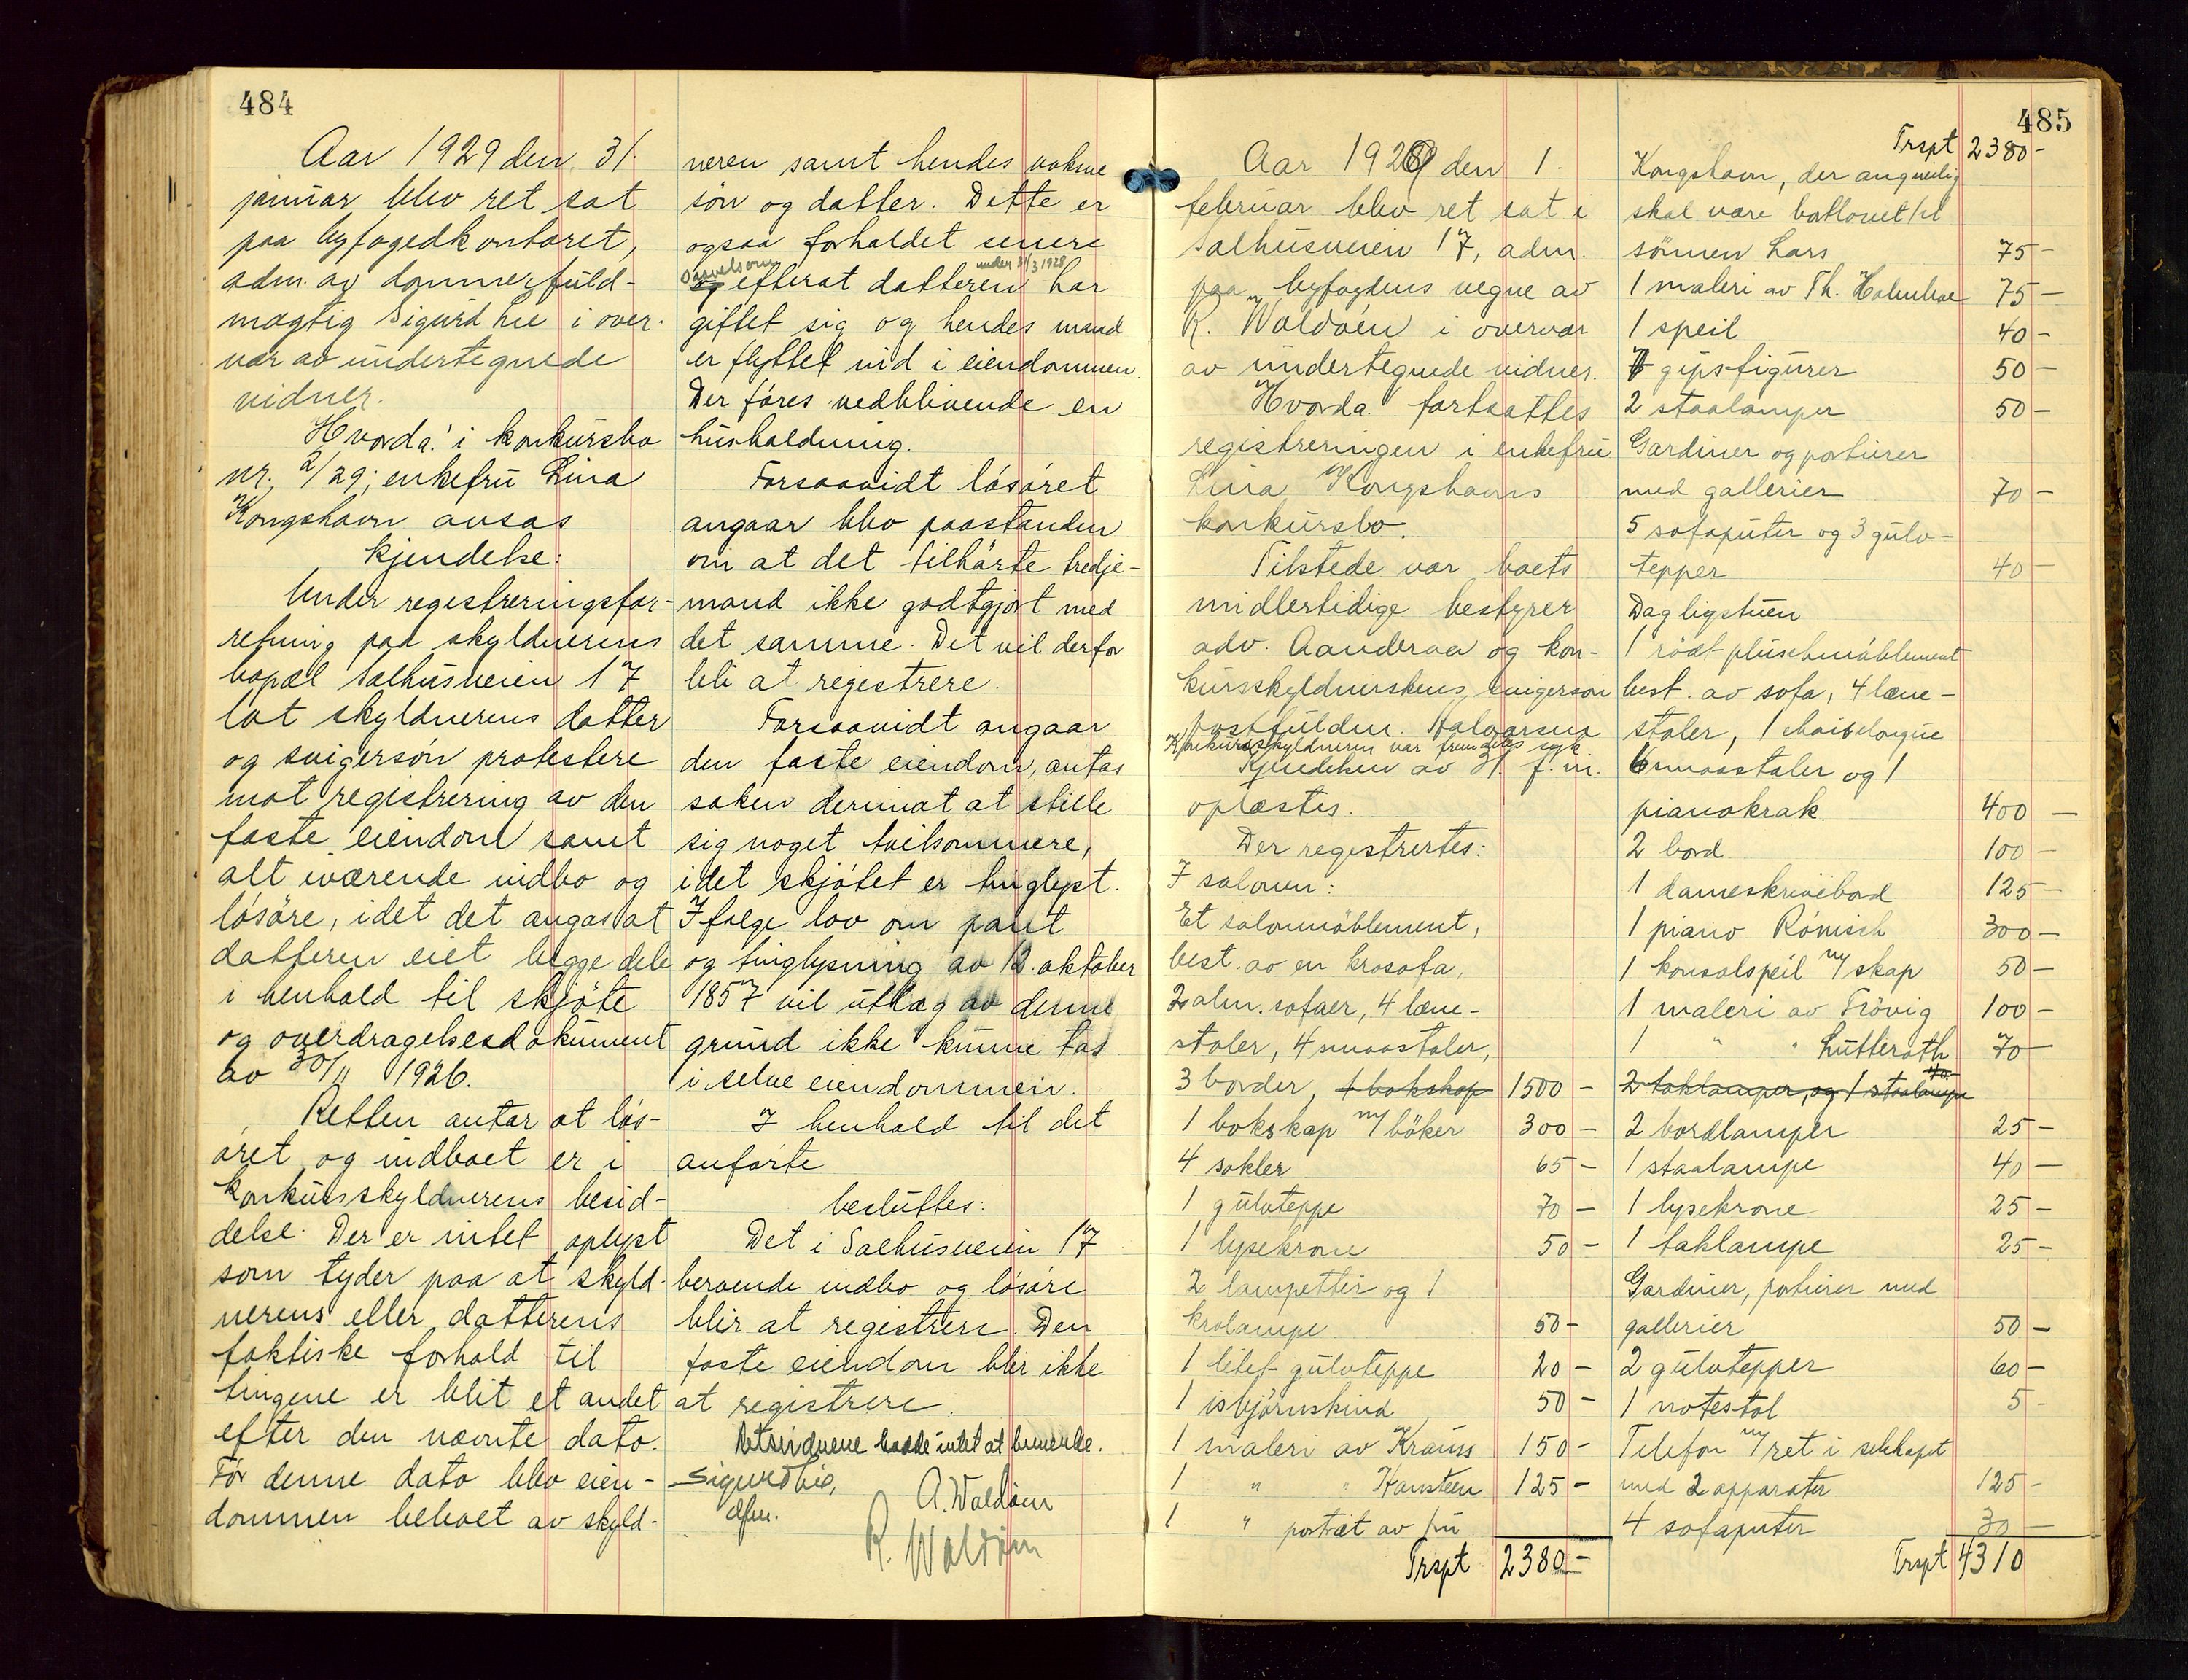 484
Aar 1929 den 31.
januar blev ret sat
paa byfogedkontoret,
adm. av dommerfuld-
mægtig Sigurd Lie i over-
vær av undertegnede
vidner.
Hvorda: i konkursbo
nr. 2/29; enkefru Lina
Kongshavn avsas
kjendelse:
Under registreringsfor-
retning paa skyldnerens
bopæl Salhusveien 17
lot skyldnerens datter
og svigersön protestere
mot registrering av den
faste eiendom samt
alt iværende indbo og
lösöre, idet det angas at
datteren eiet begge dele
i henhold til skjöte
og overdragelsesdokument
av 30/11 1926.
Retten antar at lös-
öret og indboet er i
konkursskyldnerens besid-
delse. Der er intet oplyst
som tyder paa at skyld-
nerens eller datterens
faktiske forhold til
tingene er blit et andet
efter den nævnte dato.
För denne dato blev eien-
dommen beboet av skyld-
neren samt hendes voksne
sön og datter. Dette er
ogsaa forholdet senere
saavelsom efterat datteren under 31/3 1928 har
giftet sig og hendes mand
er flyttet ind i eiendommen.
Der föres vedblivende en
husholdning.
Forsaavidt lösöret
angaar blev paastanden
om at det tilhörte tredje-
mand ikke godtgjort med
det samme. Det vil derfor
bli at registrere.
Forsaavidt angaar
den faste eiendom, antas
saken derimot at stille
sig noget tvilsommere,
idet skjötet er tinglyst.
Ifölge lov om pant
og tinglysning av 12. oktober
1857 vil utlæg av denne
grund ikke kunne tas
i selve eiendommen.
I henhold til det
anförte
besluttes:
Det i Salhusveien 17
beroende indbo og lösöre
blir at registrere. Den
faste eiendom blir ikke
at registrere.
Retsvidnene hadde intet at bemerke.
Sigurd Lie,
dfm.
A. Waldöen
R. Waldöen
485
Aar 1929 den 1.
februar blev ret sat i
Salhusveien 17, adm.
paa byfogdens vegne av
R. Waldöen i overvær
av undertegnede vidner.
Hvorda: fortsattes
registreringen i enkefru
Lina Kongshavns
konkursbo.
Tilstede var boets
midlertidige bestyrer
adv. Aanderaa og kon-
kursskyldnerskens svigersön
postfuldm. Halvorsen
Konkursskyldneren var fremdeles syk
Kjendelsen av 31. f.m.
oplæstes.
Der registrertes:
I salonen:
Et salonmöblement,
best. av en krosofa,
2 alm. sofaer, 4 læne-
stoler, 4 smaastoler,
3 border, 1 bokskap 1500 -
1 bokskap m/ böker 300 -
4 sokler 65 -
1 gulvteppe 70 -
1 lysekrone 50 -
2 lampetter og 1
krolampe 50 -
1 litet gulvteppe 20 -
1 isbjörnskind 50 -
1 maleri av Krauss 150 -
1 " " Hansteen 125 -
1 " portræt av fru
Trspt 2380 -
Trspt 2380 -
Kongshavn, der angivelig
skal være bortlovet til
sönnen Lars 75 -
1 maleri av Th. Holmboe 75 -
1 speil 40 -
7 gipsfigurer 50 -
2 staalamper 50 -
Gardiner og portierer
med gallerier 70 -
5 sofaputer og 3 gulv-
tepper 40 -
Dagligstuen
1 rödt plüschmöblement
best. av sofa, 4 læne-
stoler, 1 chaiselongue
6 smaastoler og 1
pianokrak. 400 -
2 bord 100 -
1 dameskrivebord 125 -
1 piano Rönisch 300 -
1 konsolspeil m/ skap 50 -
1 maleri av Trövig 100 -
1 " " Lutteroth 70 -
2 taklamper, og 1 staalampe
2 bordlamper 25 -
1 staalampe 40 -
1 lysekrone 25 -
1 taklampe 25 -
Gardiner, portierer med
gallerier 50 -
2 gulvtepper 60 -
1 notestol 5 -
Telefon m/ ret i selskapet
med 2 apparater 125 -
4 sofaputer 30 -
Trspt 4310